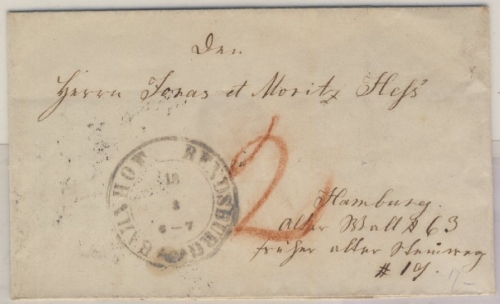 Den
Herrn Jonas et Moritz Hess
RENDSBURG BAHNHOF
18
3
6-7
2
Hamburg.
Alter Wall # 63
früher alter Steinweg
#